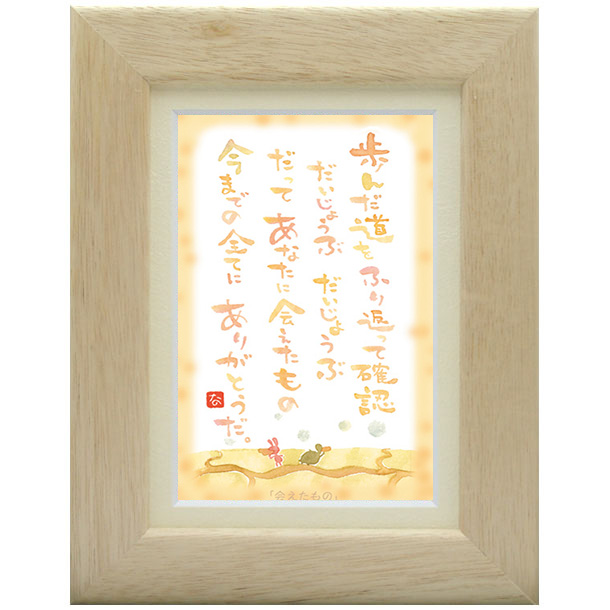 歩んだ道をふり返って確認
だいじょうぶ だいじょうぶ
だって あなたに会えたもの
今までの全てに ありがとうだ。
なの
「会えたもの」